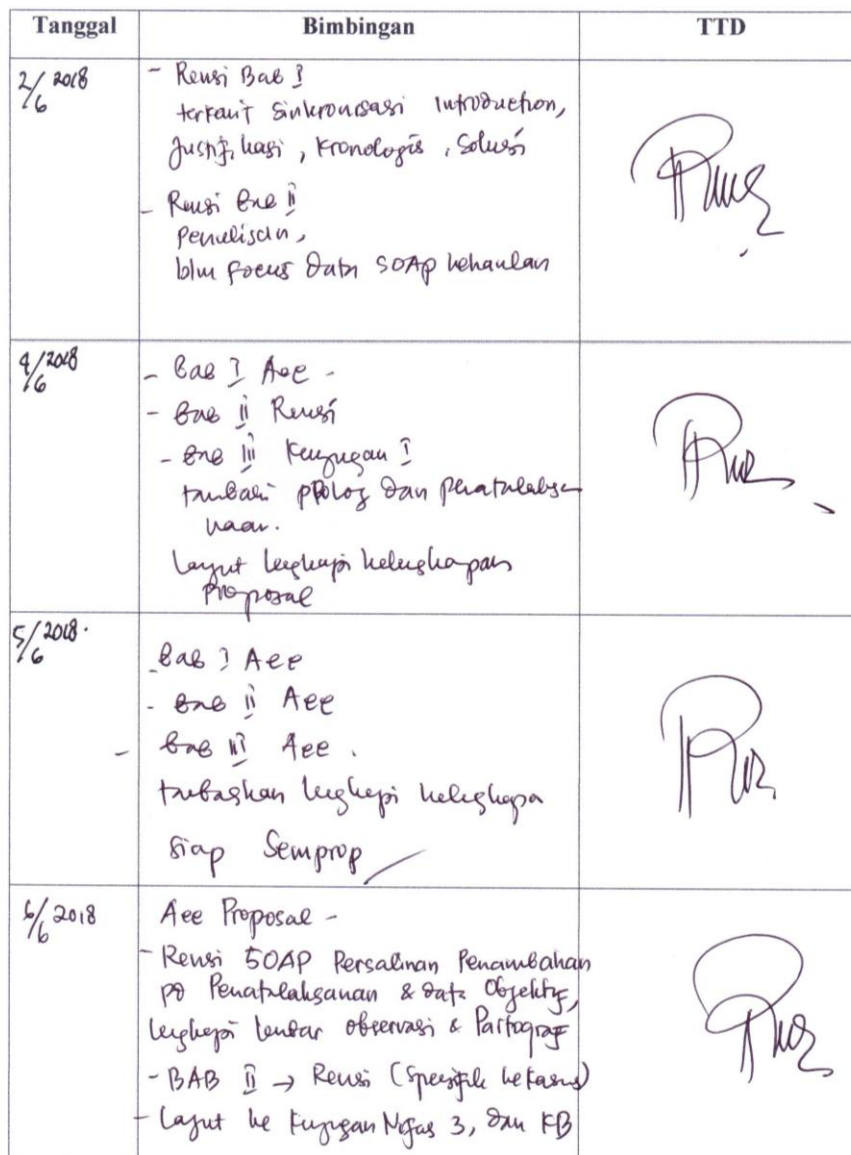 Tanggal Bimbingan TTD
2/6 2018
- Revisi Bab I
terkait sinkronisasi introduction,
Justifikasi, kronologis, solusi
- Revisi Bab II
Penulisan,
blm focus data SOAP kehamilan
4/6 2018
- Bab I Acc -
- Bab II Revisi
- Bab III Kunjungan I
tambah prolog dan penatalaksa
naan.
Lanjut lengkapi kelengkapan
Proposal
5/6 2018.
- Bab I Acc
- Bab II Acc
- Bab III Acc.
lengkapi
siap Semprop
6/6 2018
Acc Proposal -
- Revisi SOAP Persalinan Penambahan
pd Penatalaksanaan & data Objektif,
lengkapi lembar observasi & Partograf
- BAB II → Revisi (spesifik ke kasus)
- Lanjut ke kunjungan Nifas 3, dan KB